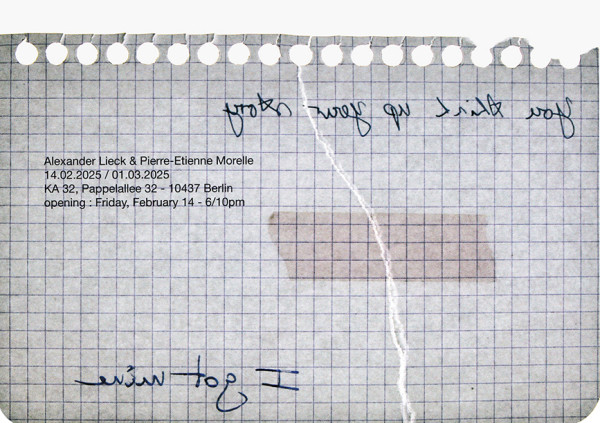 you think up your story
Alexander Lieck & Pierre-Etienne Morelle
14.02.2025 / 01.03.2025
KA 32, Pappelallee 32 - 10437 Berlin
opening : Friday, February 14 - 6/10pm
I got mine